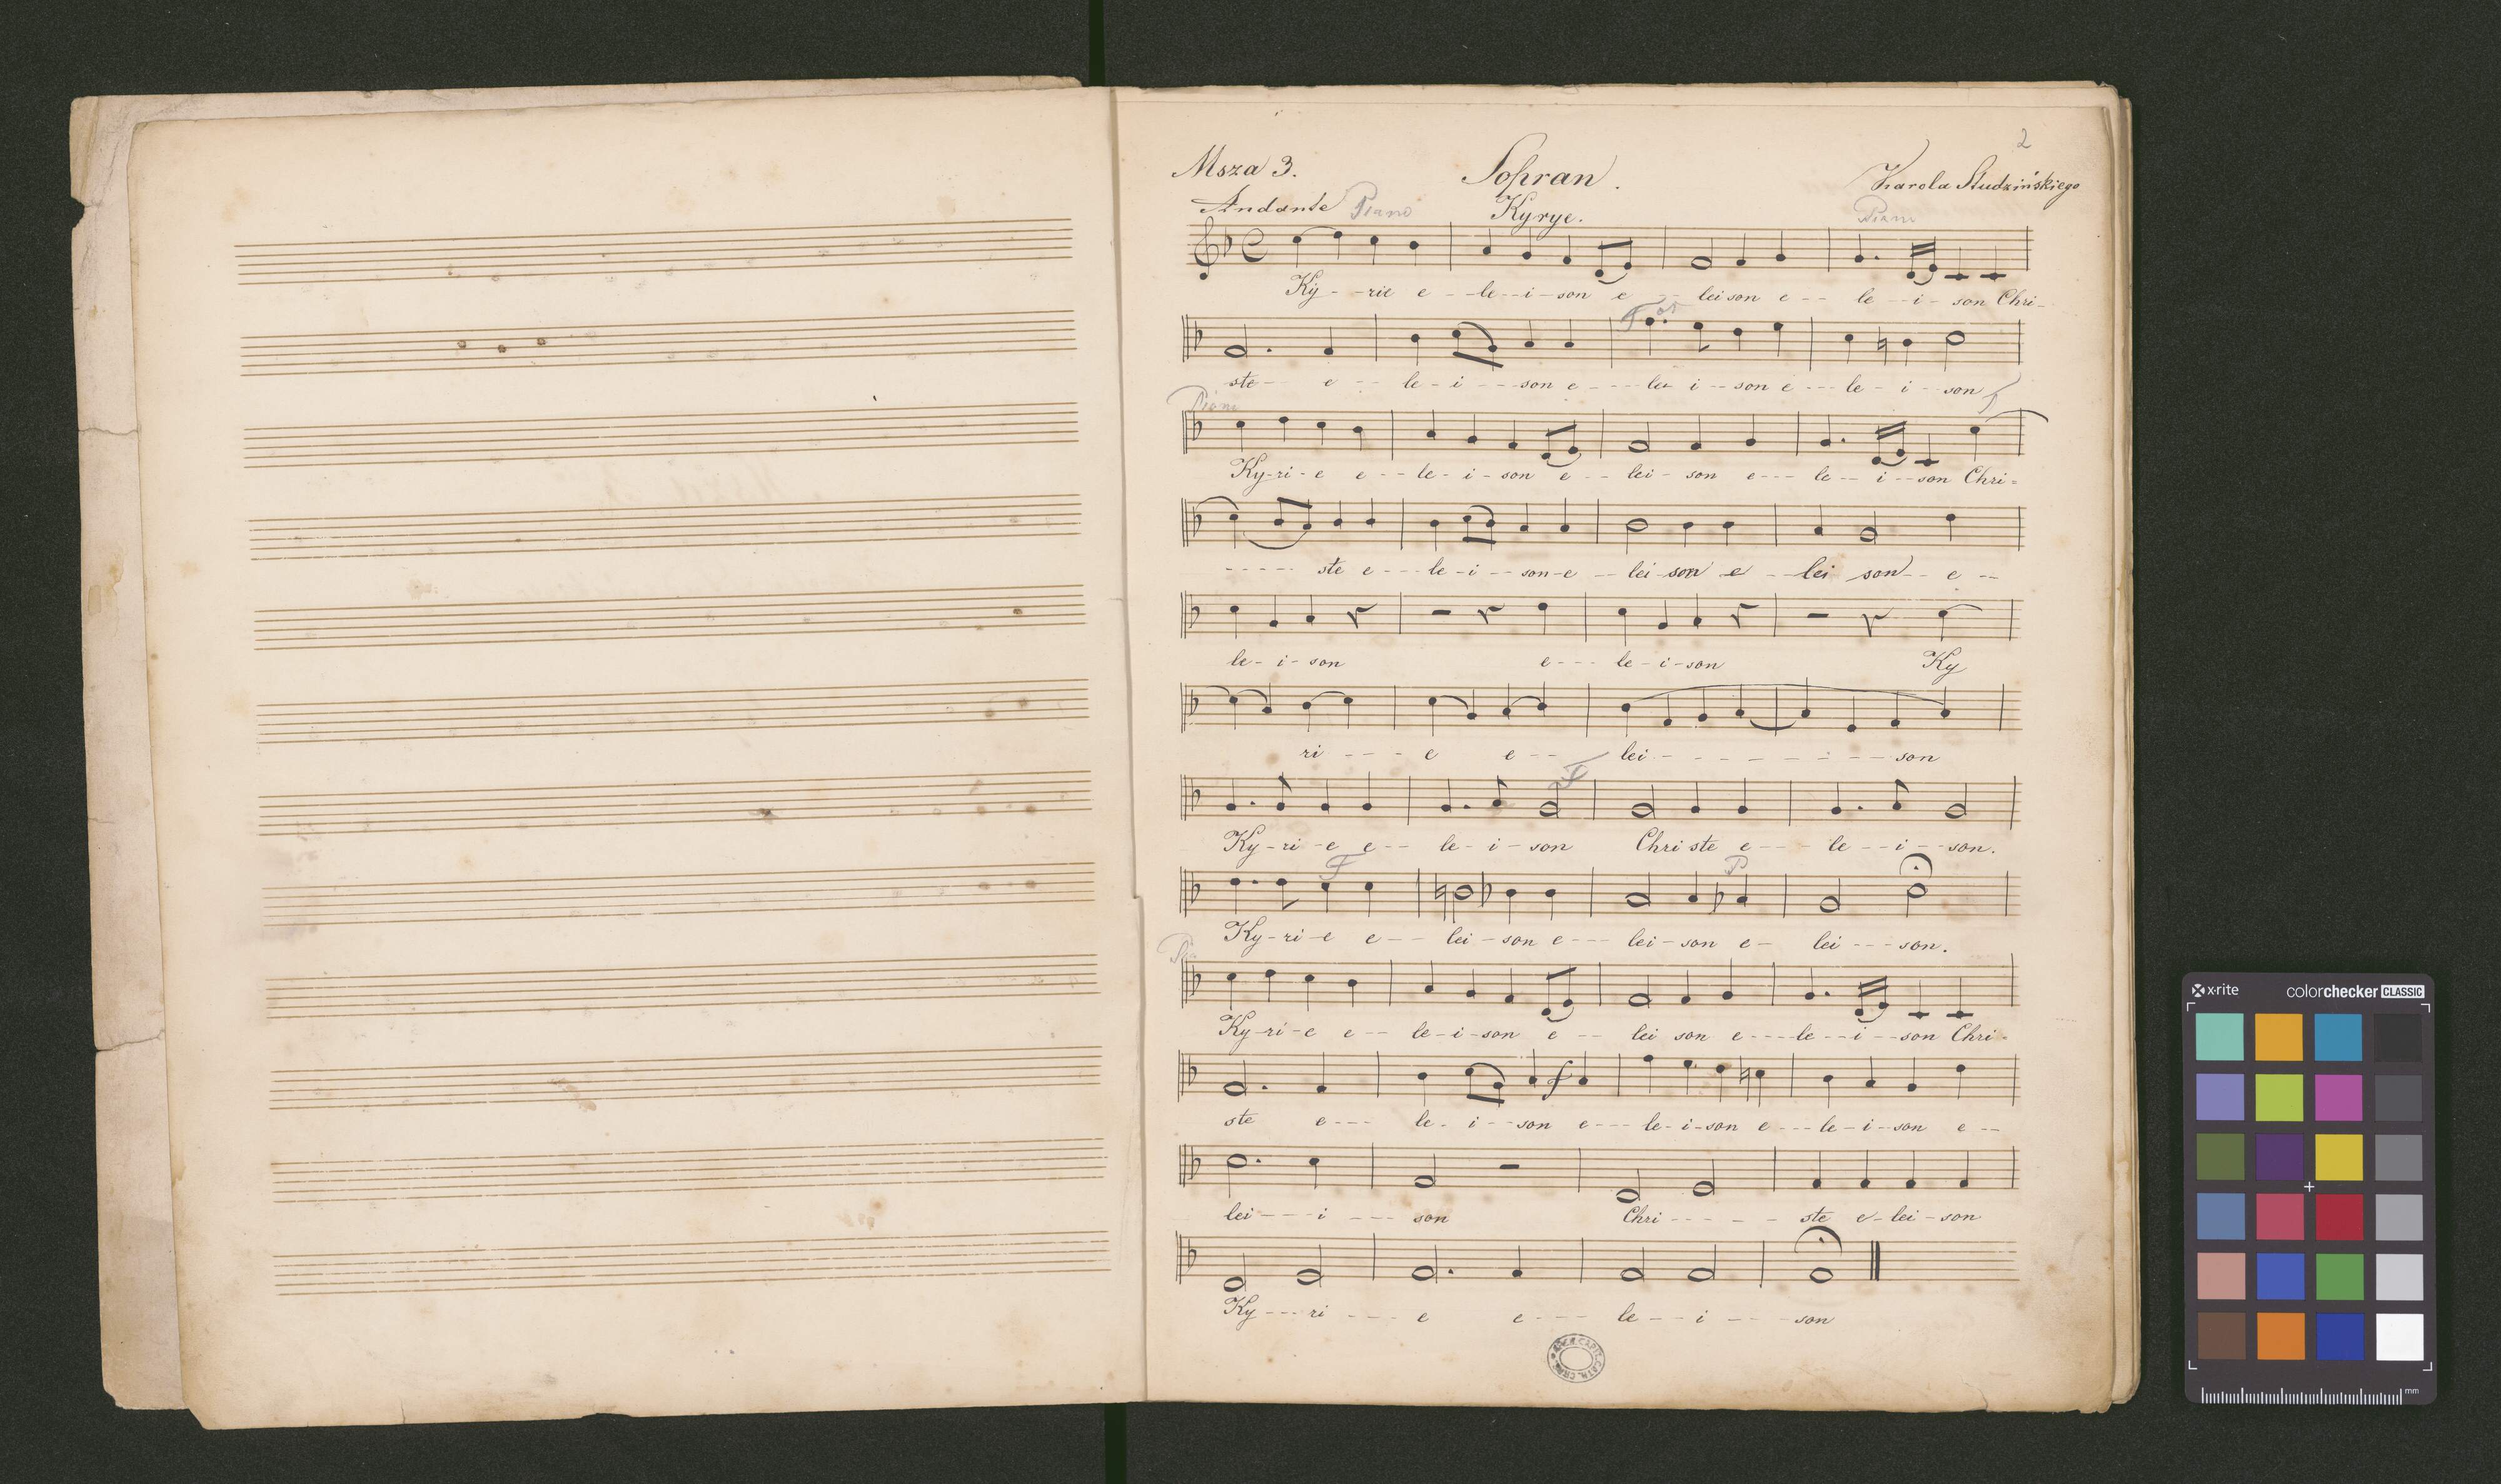 2
Msza 3. Sopran. Karola Studzińskiego
Andante Piano Kyrye. Piano
Ky - - rie e - - le - - i - son e - - leison e - - le - - i - son Chri -
For
ste - - e - - le - i - - - son e - - - - lei i - - son e - - - le - i - - son
f
Piano
Ky - ri - e e - - - le - i - son e - - lei - son e - - - le - - i - - son Chri =
- - - - - ste e - - - le - i - - son - e - - lei - son e - - lei son - - e - -
le - i - son e - - - le - i - son Ky
ri - - - e e - - lei - - - - - - - - - son
F
Ky - ri - e e - - le - i - son Chri ste e - - - le - - i - - son.
F P
Ky - ri - e e - - - lei - son e - - - lei - son e - lei - - - son.
Pia
Ky - ri - e e - - le - i - son e - - lei son e - - - - le - - i - - son Chri -
f
ste e - - - le - i - - son e - - - le - i - son e - - - le - i - son e - -
lei - - - i - - - son Chri - - - - - ste e - lei - son
Ky - - - ri - - - e e - - - le - - i - - - son
x·rite colorchecker CLASSIC
mm